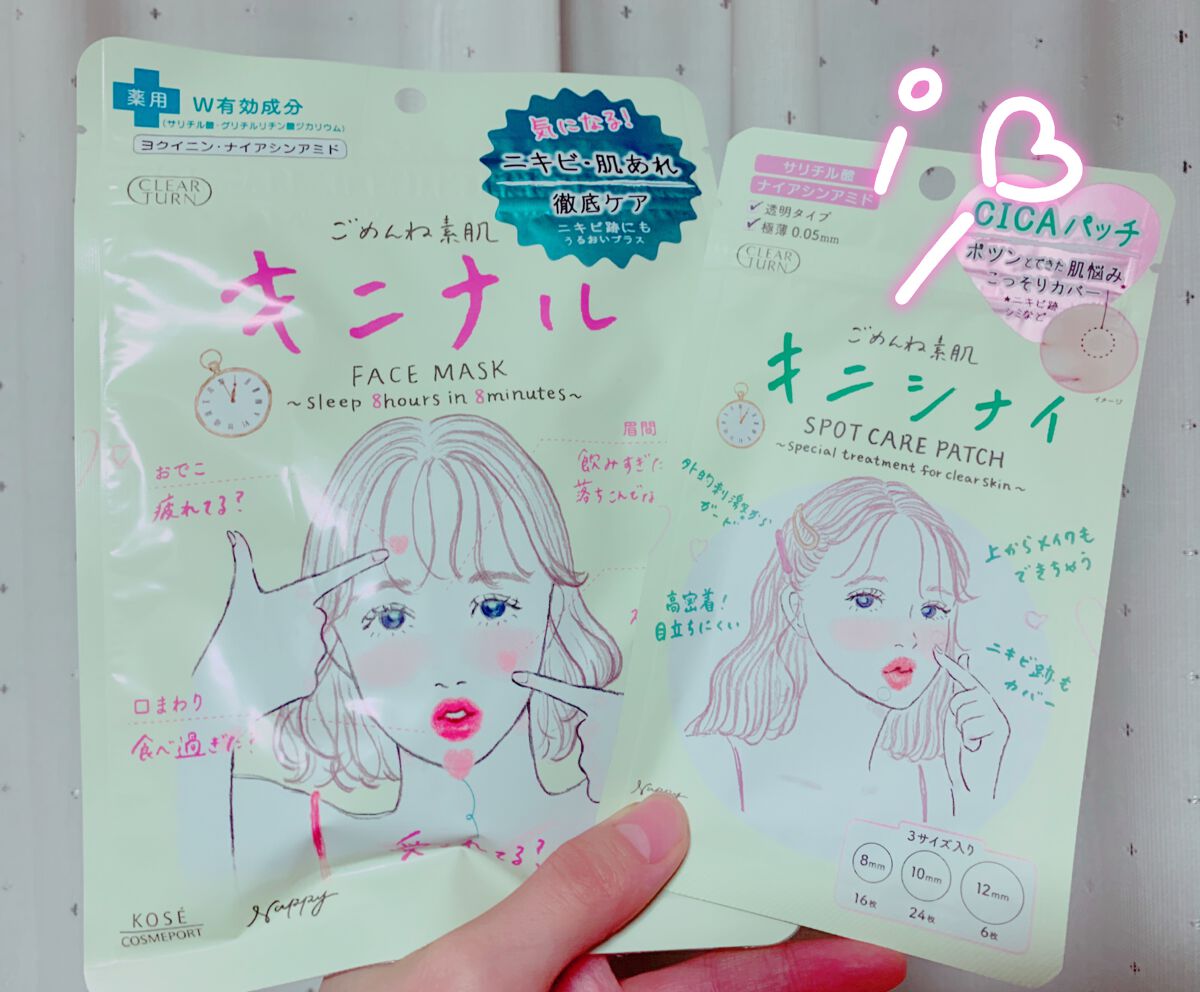 薬用
W有効成分
(サリチル酸・グリチルリチン酸ジカリウム)
ヨクイニン・ナイアシンアミド
CLEAR
TURN
気になる!
ニキビ・肌あれ
徹底ケア
ニキビ跡にも
うるおいプラス
ごめんね素肌
キニナル
FACE MASK
~sleep 8hours in 8minutes~
おでこ
疲れてる?
眉間
飲みすぎた
落ちこんでな
口まわり
食べ過ぎた?
てる?
KOSÉ
COSMEPORT
Nappy
サリチル酸
ナイアシンアミド
✓透明タイプ
✓極薄 0.05mm
CLEAR
TURN
CICAパッチ
ポツンとできた肌悩み*
こっそりカバー
★ニキビ跡
シミなど
イメージ
ごめんね素肌
キニシナイ
SPOT CARE PATCH
~special treatment for clear skin~
外的刺激から
ガード
上からメイクも
できちゃう
高密着!
目立ちにくい
ニキビ跡も
カバー
Nappy
3サイズ入り
8mm
10mm
12mm
16枚
24枚
6枚